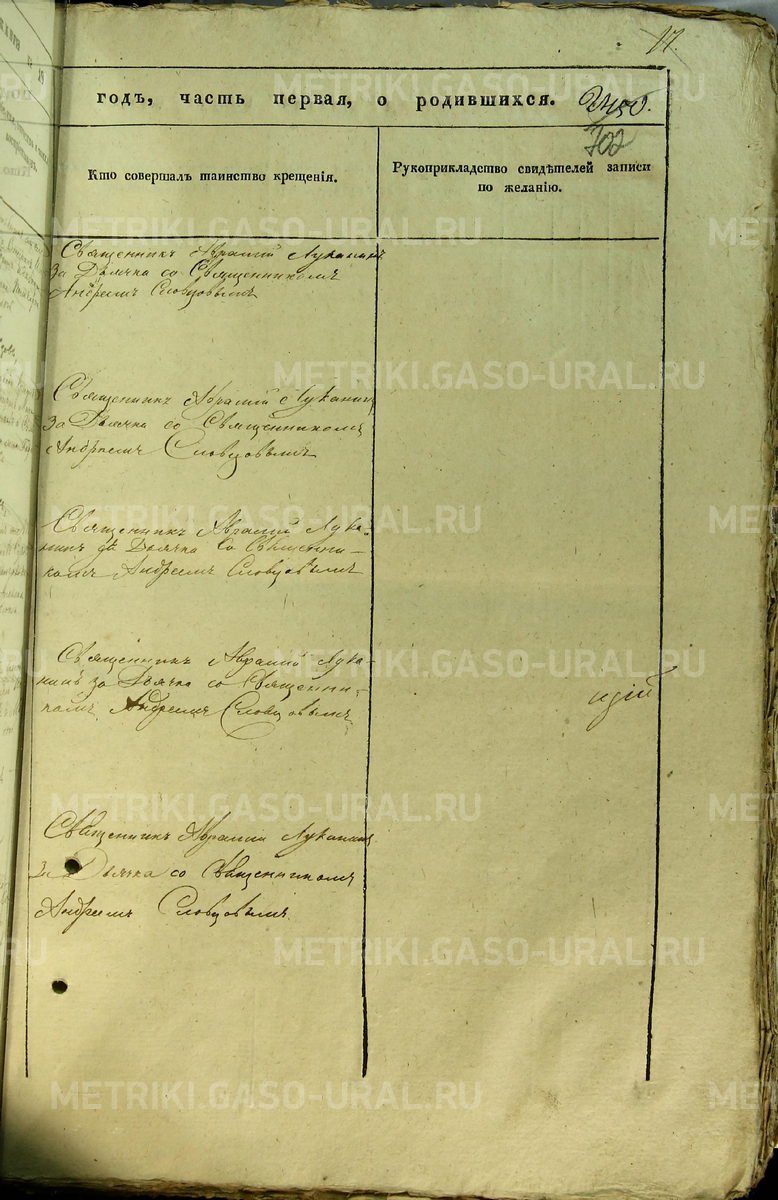 17.
годъ, часть первая, о родившихся.
702
Кто совершалъ таинство крещенія.
Рукоприкладство свидѣтелей записи
по желанію.
Священникъ Авраамій Луканинъ
за Дьячка со Священникомъ
Андреемъ Словцовымъ
Священникъ Авраамій Луканинъ
за Дьячка со Священникомъ
Андреемъ Словцовымъ
Священникъ Авраамій Лука-
нинъ за Дьячка со Священни-
комъ Андреемъ Словцовымъ
Священникъ Авраамій Лука-
нинъ за Дьячка со Священни-
комъ Андреемъ Словцовымъ
Священникъ Авраамій Луканинъ
за Дьячка со Священникомъ
Андреемъ Словцовымъ
METRIKI.GASO-URAL.RU